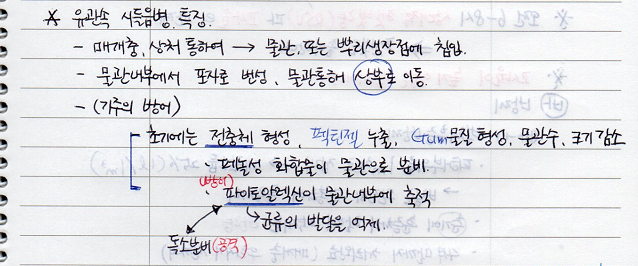 ※ 유관속 시듦음병. 특징.
- 매개충, 상처 통하여 → 물관, 또는 뿌리생장점에 침입.
- 물관내부에서 포자로 번성, 물관통해 상부로 이동.
- (기주의 방어)
초기에는 전충체 형성, 펙틴젤 누출, Gum물질 형성, 물관수, 크기 감소
· 페놀성 화합물이 물관으로 분비.
(방어)
· 파이토알렉신이 물관내부에 축적
↳ 균류의 발달을 억제.
독소분비 (공격)